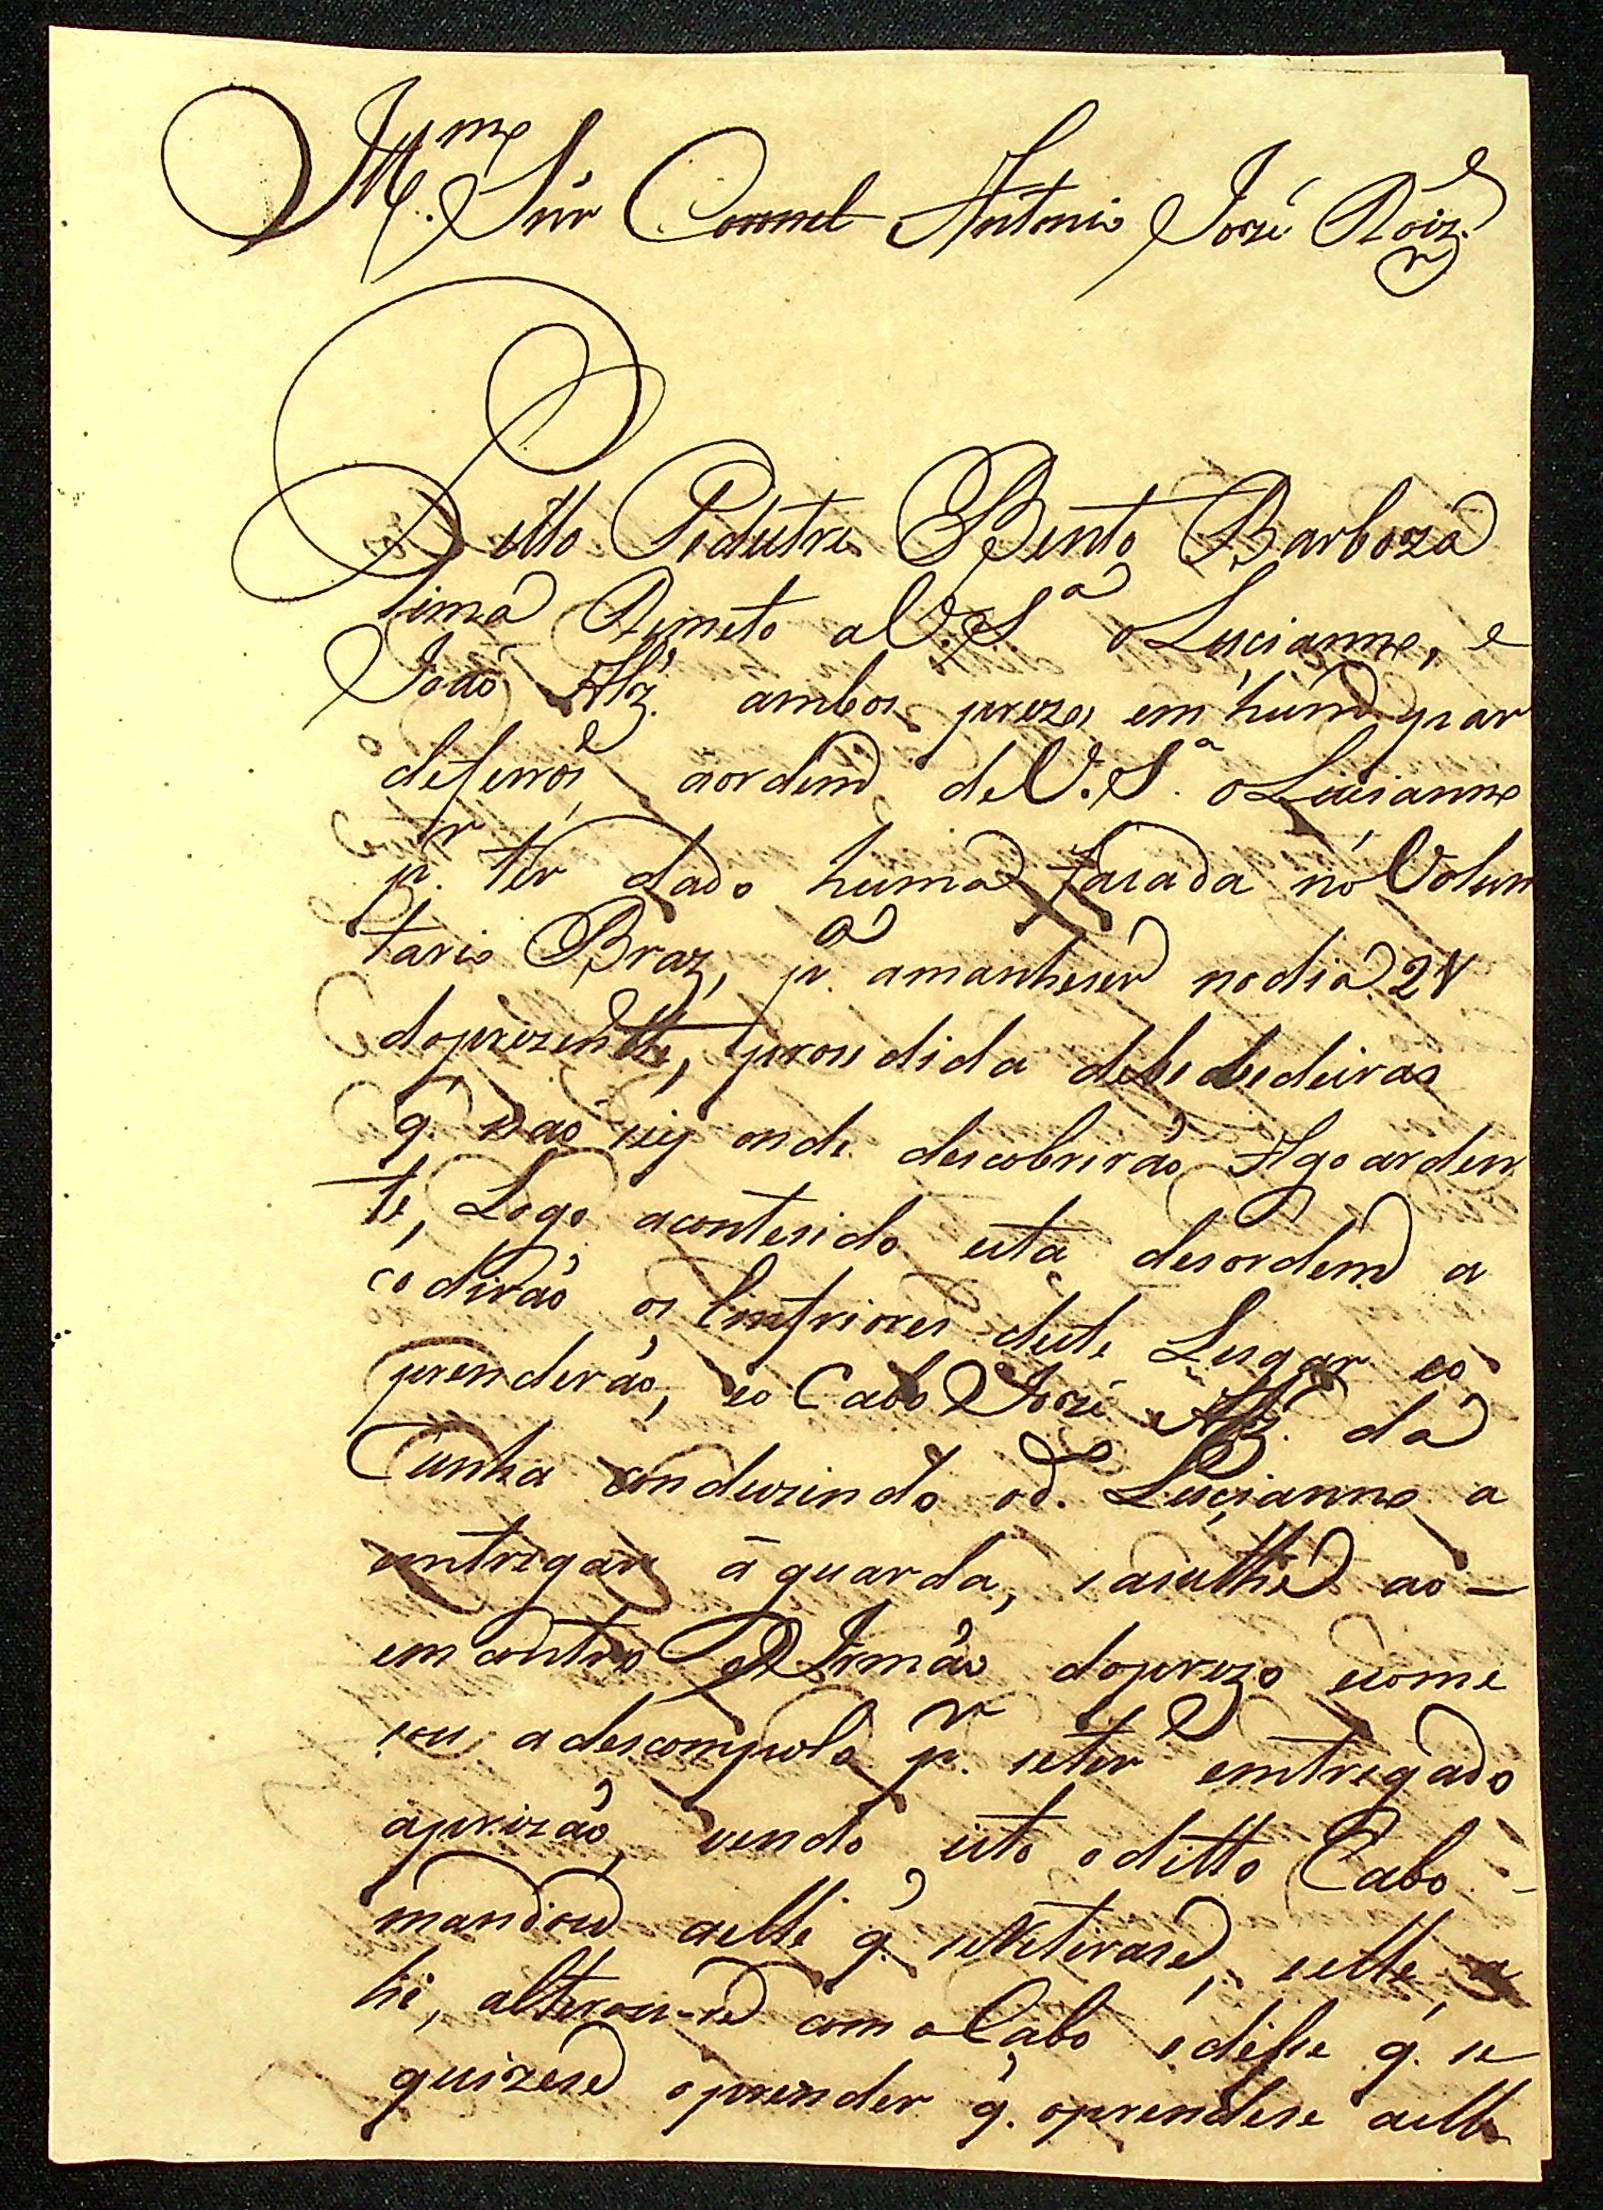 Illmo. Snr Coronel Antonio José Roiz.
Pello Pedestre Bento Barboza
lima Remeto a V. Sa. o Lucianno, e
João Alz. ambos prezos em hum par
de ferros a ordem de V. Sa. o Lucianno
pr. ter dado huma facada no Volun
tario Braz, pa. amanheser no dia 24
do prezente, prosedida de bebedeiras
q. vão seij onde descobrirão Agoarden
te, Logo acontesido esta desordem a
codirão os Emferiores deste Lugar eo
prenderão, eo Cabo José Alz. da
Cunha conduzindo o d. Lucianno a
entregar á guarda, saeulhe ao
emcontro o Irmão do prezo ecome
sou a descompolo pr. seter emtregado
aprizão, vendo isto o ditto Cabo
mandou aelle q. seRetirase, eelle, a
hi, alterou-se com o Cabo edisse q. se
quizese o prender q. oprendese aelle